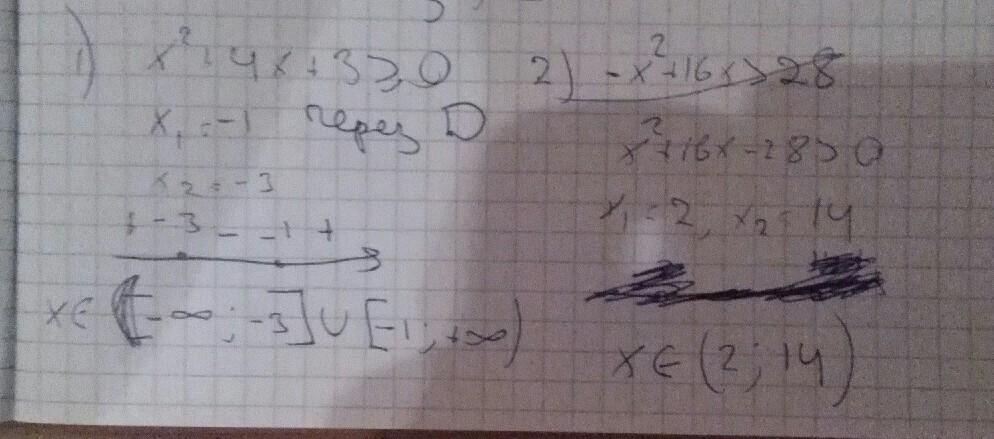 1) x²+4x+3≥0
x₁=-1 через D
x₂=-3
+ -3 - -1 +
x∈[-∞;-3]∪[-1;+∞)
2) -x²+16x>28
x²+16x-28>0
x₁=2, x₂=14
x∈(2;14)